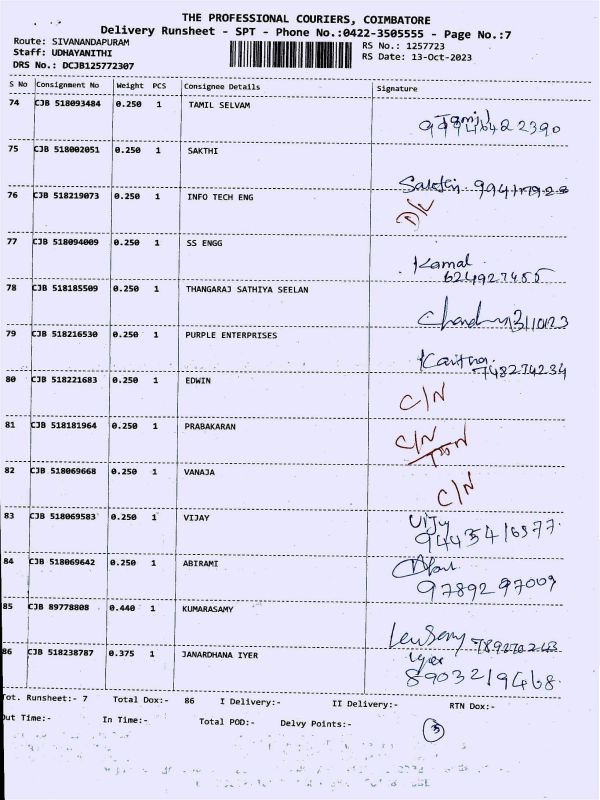 THE PROFESSIONAL COURIERS, COIMBATORE
Delivery Runsheet - SPT - Phone No.:0422-3505555 - Page No.:7
Route: SIVANANDAPURAM
RS No.: 1257723
Staff: UDHAYANITHI
RS Date: 13-Oct-2023
DRS No.: DCJB125772307
S No Consignment No Weight PCS Consignee Details Signature
74 CJB 518093484 0.250 1 TAMIL SELVAM
Tamil
75 CJB 518002051 0.250 1 SAKTHI
Sakthi
76 CJB 518219073 0.250 1 INFO TECH ENG
D/L
77 CJB 518094009 0.250 1 SS ENGG
Kamal
624927455
78 CJB 518185509 0.250 1 THANGARAJ SATHIYA SEELAN
79 CJB 518216530 0.250 1 PURPLE ENTERPRISES
748274234
80 CJB 518221683 0.250 1 EDWIN
C/N
81 CJB 518181964 0.250 1 PRABAKARAN
C/N
82 CJB 518069668 0.250 1 VANAJA
C/N
83 CJB 518069583 0.250 1 VIJAY
Vijy
9443416977
84 CJB 518069642 0.250 1 ABIRAMI
9789297009
85 CJB 89778808 0.440 1 KUMARASAMY
86 CJB 518238787 0.375 1 JANARDHANA IYER
iyer
8903219468
Tot. Runsheet:- 7 Total Dox:- 86 I Delivery:- II Delivery:- RTN Dox:-
Out Time:- In Time:- Total POD:- Delvy Points:-